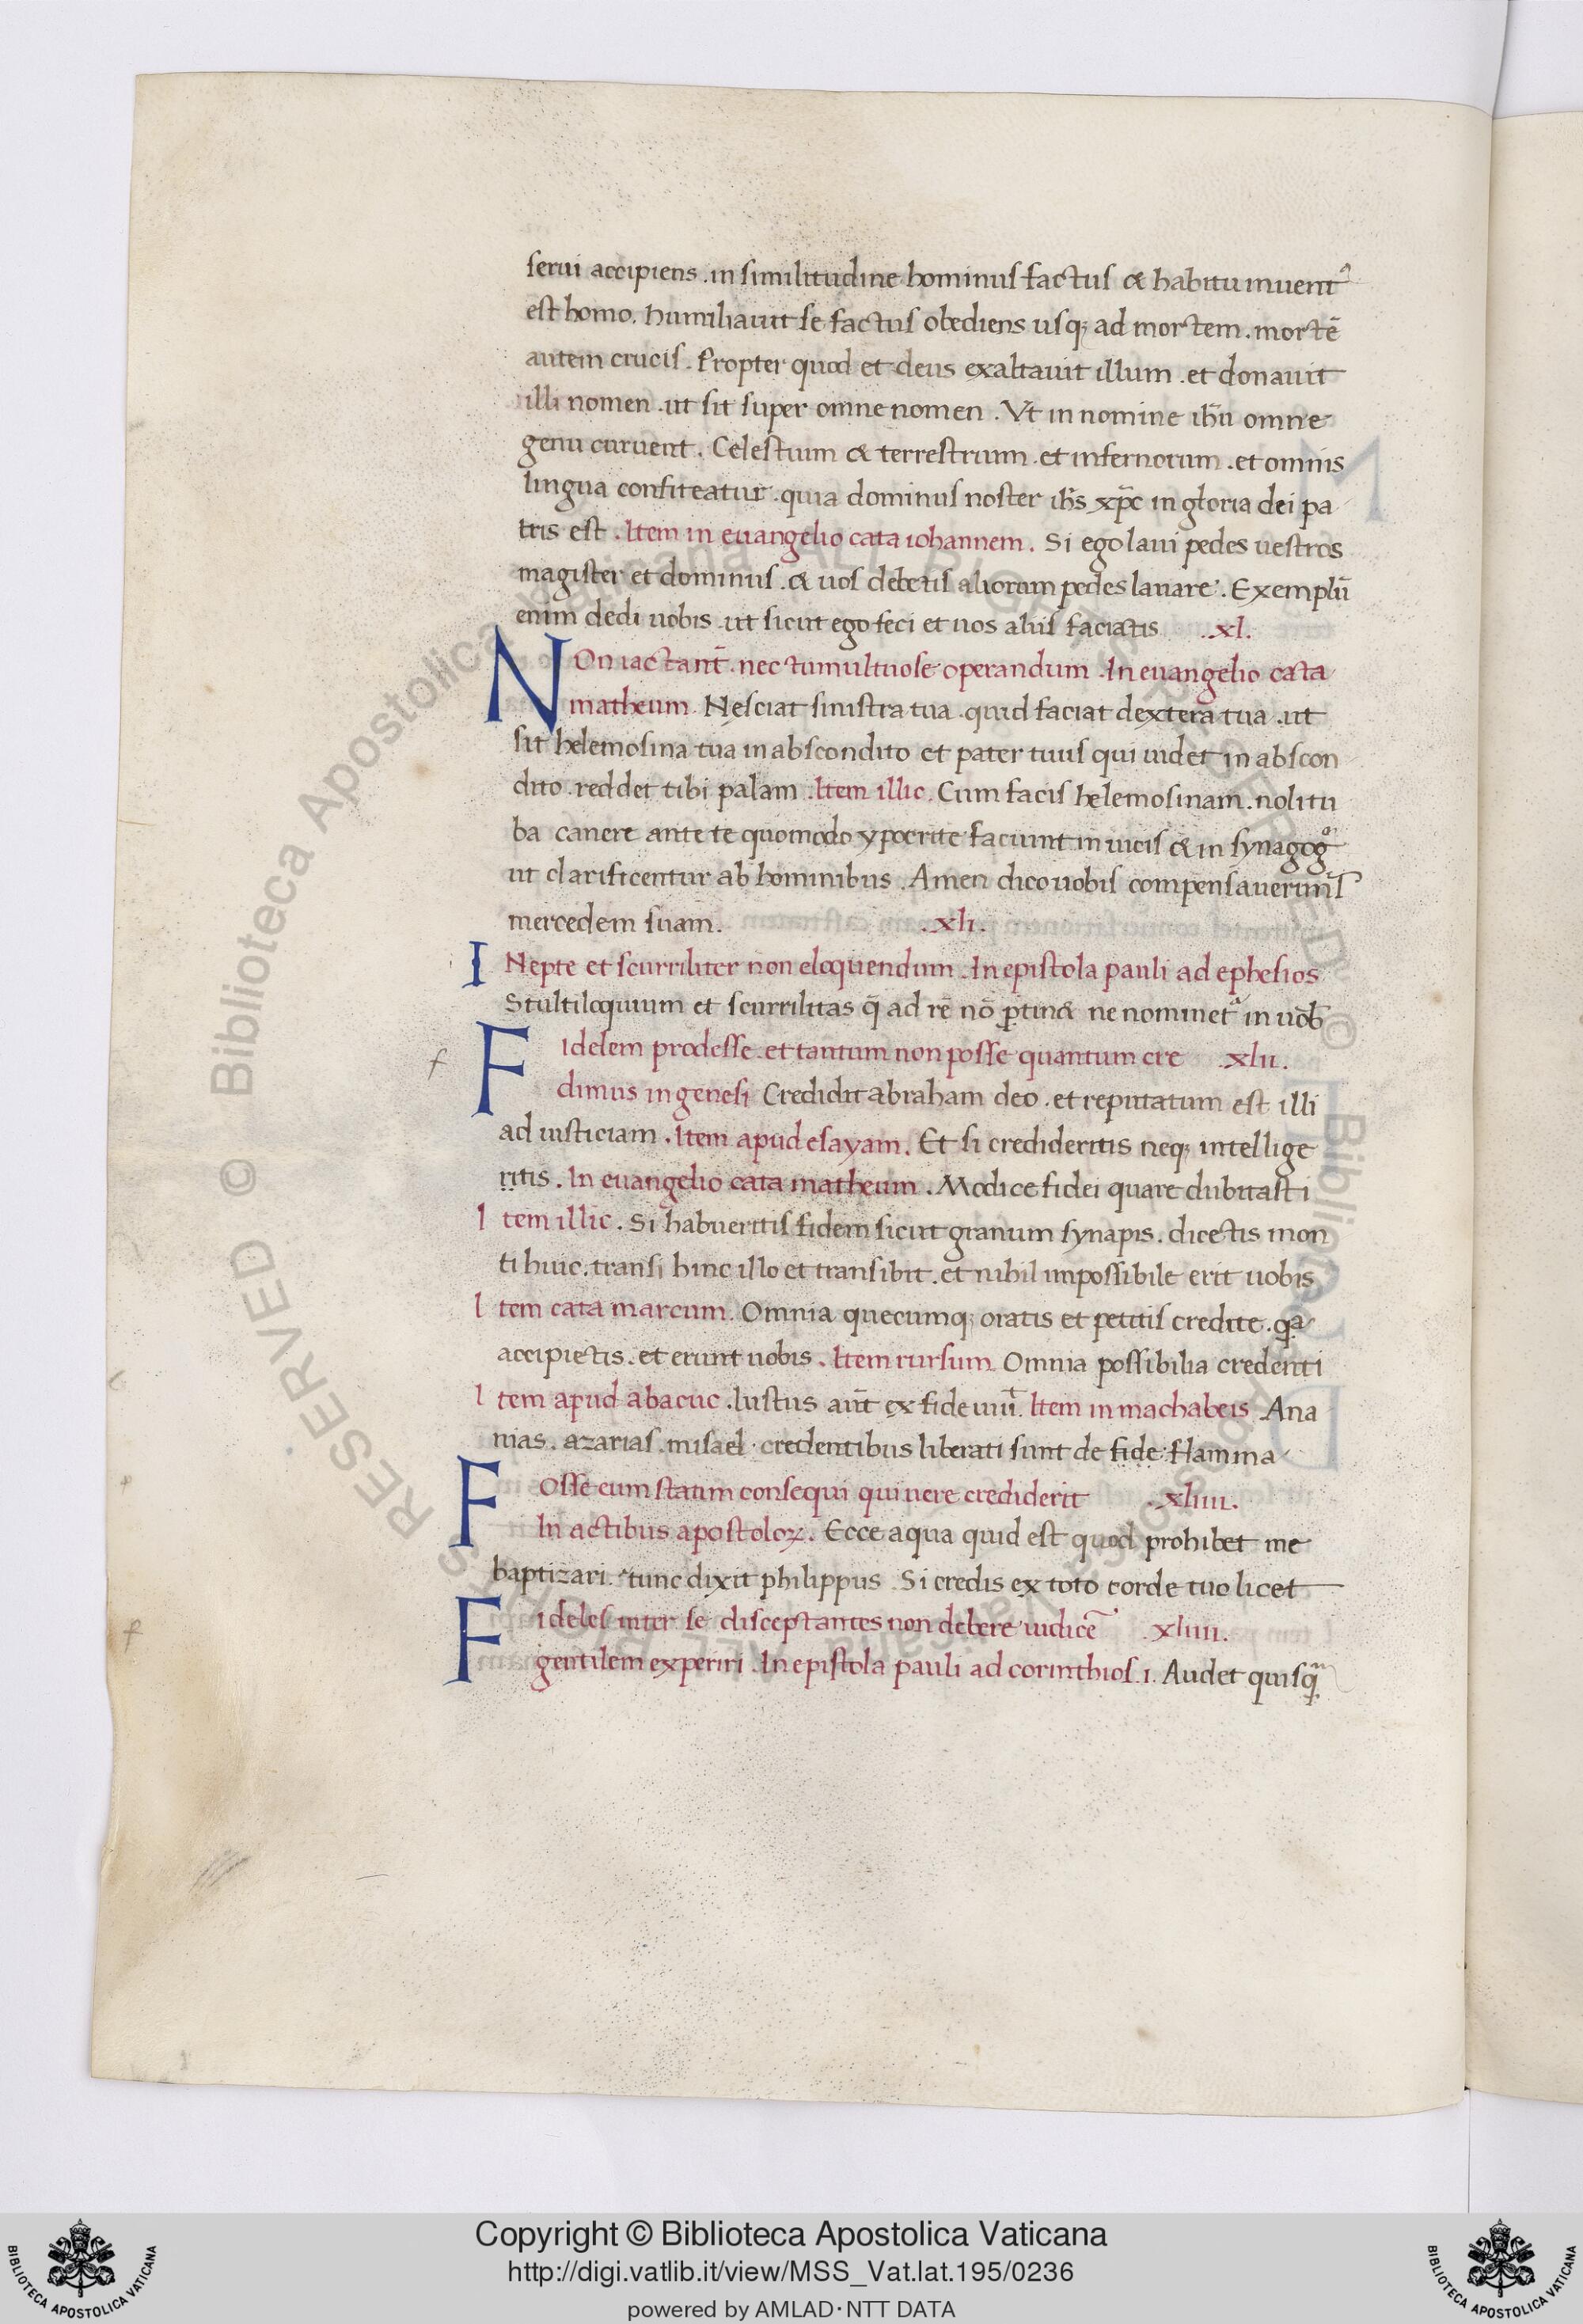 serui accipiens .in similitudine hominis factus & habitu inuent᾽
est homo. humiliauit se factus obediens usq; ad mortem. mortē
autem crucis. Propter quod et deus exaltauit illum .et donauit
illi nomen .ut sit super omne nomen . Vt in nomine ihū omne
genu curuent . Celestium & terrestrium .et infernorum .et omnis
lingua confiteatur .quia dominus noster ihs̄ xp̄c in gloria dei pa
tris est . Item in euangelio cata iohannem . Si ego laui pedes uestros
magister et dominus .& uos debetis aliorum pedes lauare . Exemplū
enim dedi uobis .ut sicut ego feci et uos aliis faciatis .xl.
NOn iactant̄ .nec tumultuose operandum .In euangelio cata
matheum Nesciat sinistra tua .quid faciat dextera tua .ut
sit helemosina tua in abscondito et pater tuus qui uidet in abscon
dito .reddet tibi palam .Item illic. Cum facis helemosinam .noli tu
ba canere ante te quomodo ypocrite faciunt in uicis & in synagog
ut clarificentur ab hominibus . Amen dico uobis compensauerunt
mercedem suam. .xli.
INepte et scurriliter non eloquendum .In epistola pauli ad ephesios
Stultiloquium et scurrilitas q̄ ad rē nō ptin& ne nominet in uob̄
f Fidelem prodesse .et tantum non posse quantum cre .xlii.
dimus in genesi Credidit abraham deo .et reputatum est illi
ad iusticiam . Item apud esayam . Et si credideritis neq; intellige
ritis . In euangelio cata matheum . Modice fidei quare dubitasti
Item illic . Si habueritis fidem sicut granum synapis . dicetis mon
ti huic .transi hinc illo et transibit .et nihil impossibile erit uobis
Item cata marcum. Omnia quecumq; oratis et petitis credite .qa
accipietis .et erunt uobis . Item rursum Omnia possibilia credenti
Item apud abacuc .Iustus aūt ex fide uiu. Item in machabeis .Ana
nias . azarias .misael . credentibus liberati sunt de fide . flamma
FOsse eum statim consequi qui uere crediderit .xliiii.
In actibus apostoloꝝ . Ecce aqua quid est quod prohibet me
baptizari . tunc dixit philippus . Si credis ex toto corde tuo licet
Fideles inter se disceptantes non debere iudicē .xliiii.
gentilem experiri .In epistola pauli ad corinthios .i. Audet quisq̄
Copyright © Biblioteca Apostolica Vaticana
http://digi.vatlib.it/view/MSS_Vat.lat.195/0236
powered by AMLAD·NTT DATA
BIBLIOTECA APOSTOLICA VATICANA
BIBLIOTECA APOSTOLICA VATICANA